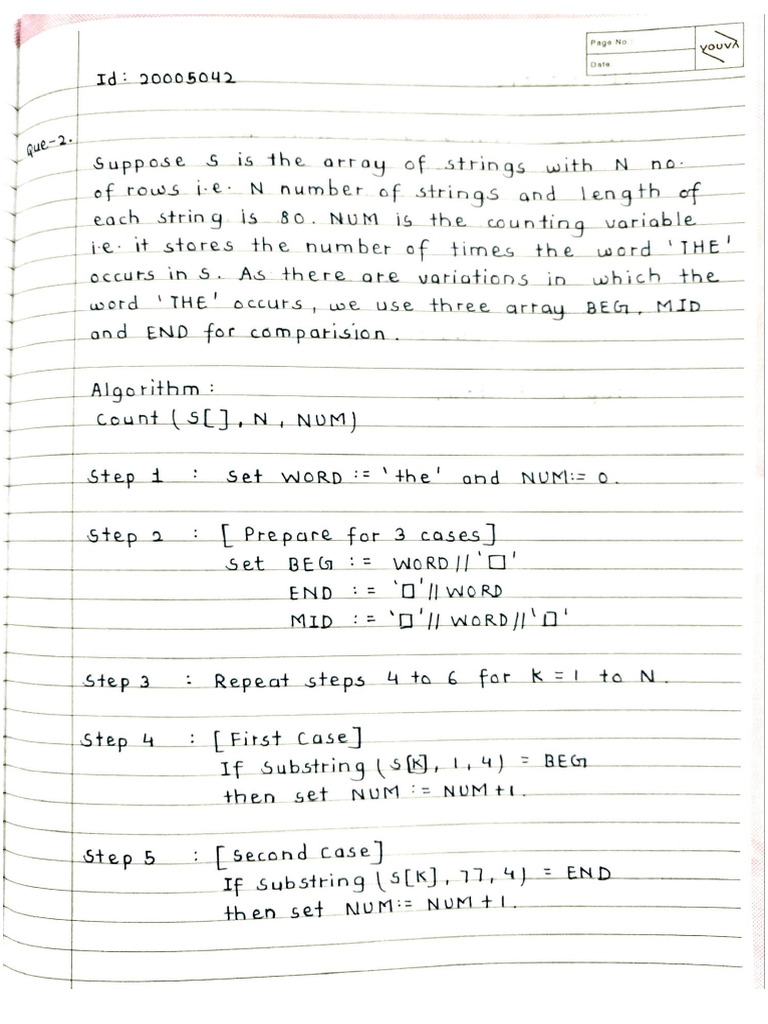 Page No :
Date
YOUVA
Id: 20005042
Que-2.
Suppose S is the array of strings with N no.
of rows i.e. N number of strings and length of
each string is 80. NUM is the counting variable
i.e. it stores the number of times the word 'THE'
occurs in S. As there are variations in which the
word 'THE' occurs, we use three array BEG, MID
and END for comparision.
Algorithm :
Count (S[], N, NUM)
Step 1 : Set WORD := 'the' and NUM:= 0.
Step 2 : [ Prepare for 3 cases]
Set BEG := WORD//'□'
END := '□'//WORD
MID := '□'//WORD//'□'
Step 3 : Repeat steps 4 to 6 for K=1 to N.
Step 4 : [First Case]
If Substring (S[K], 1, 4) = BEG
then set NUM := NUM+1.
Step 5 : [Second Case]
If Substring (S[K], 77, 4) = END
then set NUM:= NUM+1.